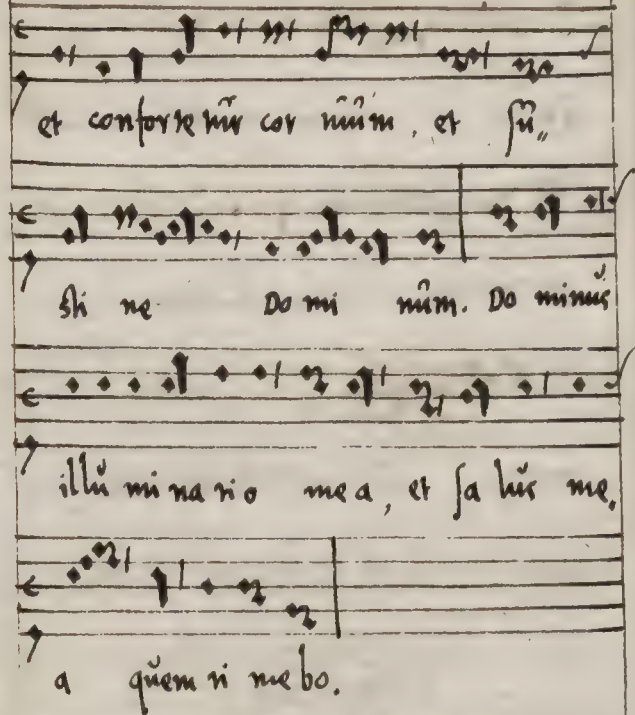 et conforte tur cor tuum, et su„
sti ne Do mi num. Do minus
illu mi na tio me a, et sa lus me,
a quem ti me bo.